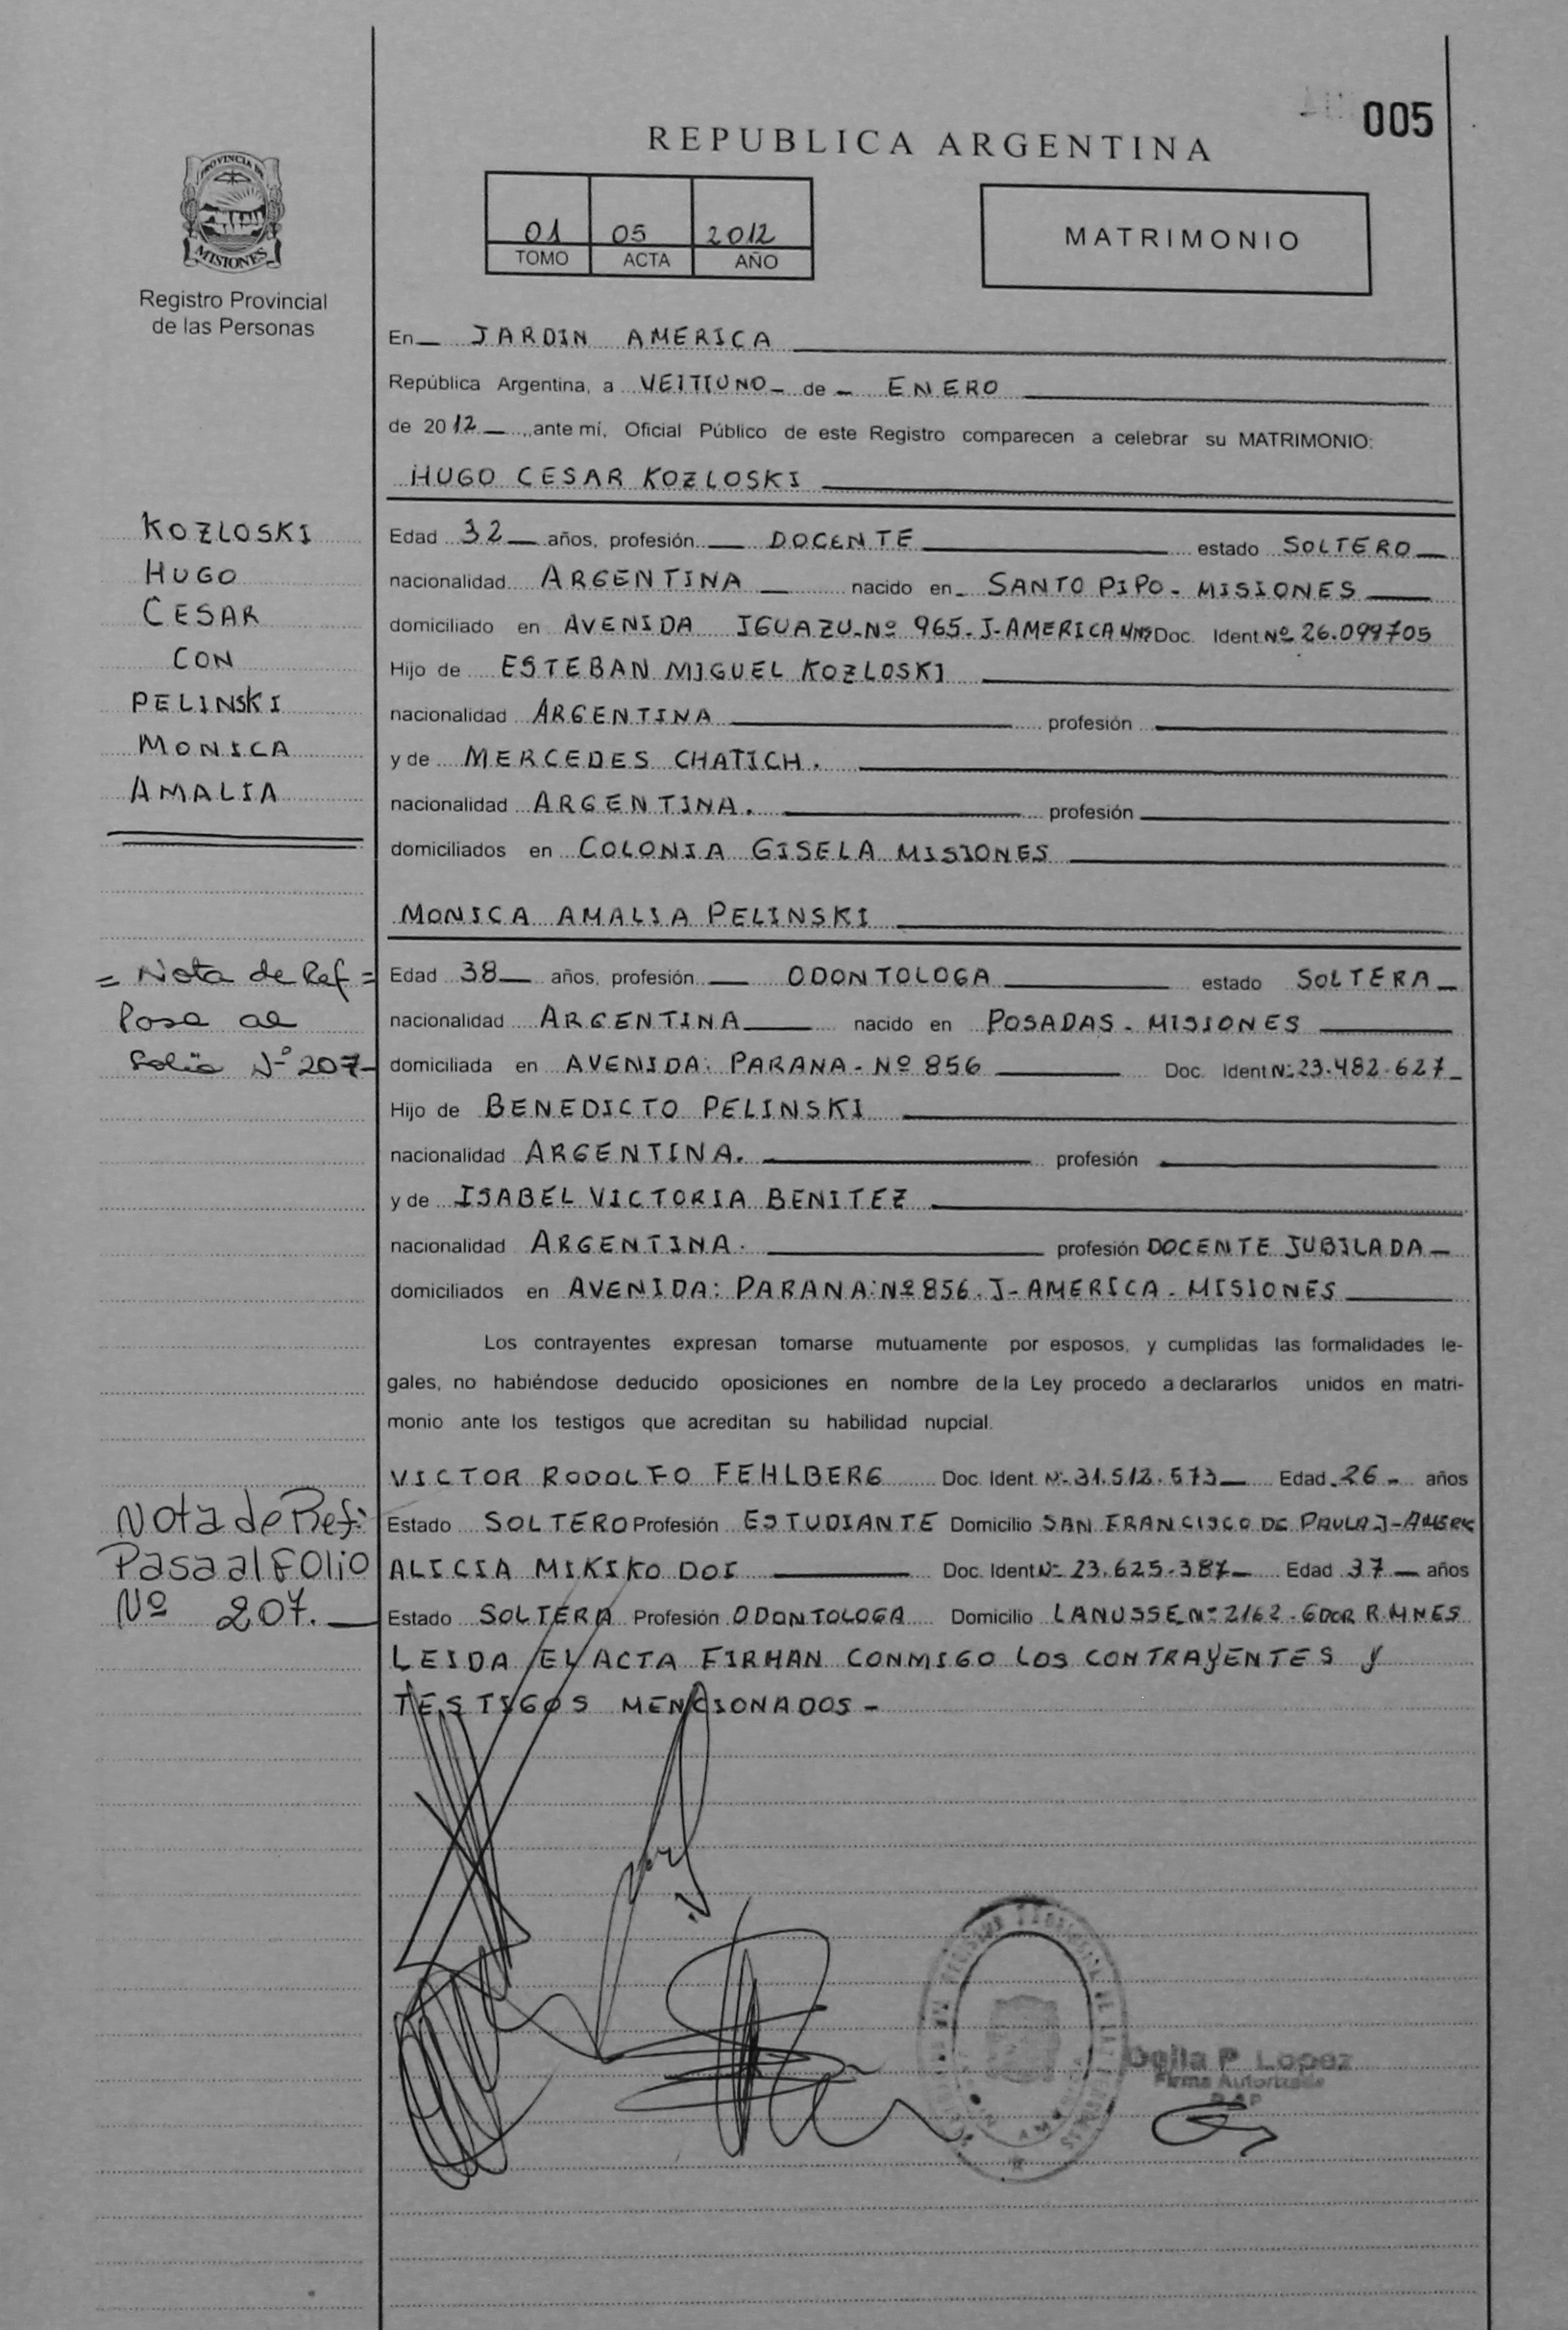 005
REPUBLICA ARGENTINA
PROVINCIA DE
MISIONES
Registro Provincial
de las Personas
01 05 2012
TOMO ACTA AÑO
MATRIMONIO
En JARDIN AMERICA
República Argentina, a VEITIUNO de ENERO
de 2012, ante mí, Oficial Público de este Registro comparecen a celebrar su MATRIMONIO:
HUGO CESAR KOZLOSKI
KOZLOSKI
HUGO
CESAR
CON
PELINSKI
MONICA
AMALIA
Edad 32 años, profesión DOCENTE estado SOLTERO
nacionalidad ARGENTINA nacido en SANTO PIPO - MISIONES
domiciliado en AVENIDA IGUAZU-Nº 965-J-AMERICA Doc. Ident Nº 26.099705
Hijo de ESTEBAN MIGUEL KOZLOSKI
nacionalidad ARGENTINA profesión
y de MERCEDES CHATICH.
nacionalidad ARGENTINA. profesión
domiciliados en COLONIA GISELA MISIONES
MONICA AMALIA PELINSKI
= Nota de Ref =
Pasa al
folio Nº 207-
Edad 38 años, profesión ODONTOLOGA estado SOLTERA
nacionalidad ARGENTINA nacido en POSADAS - MISIONES
domiciliada en AVENIDA: PARANA - Nº 856 Doc. Ident Nº 23.482.627
Hijo de BENEDICTO PELINSKI
nacionalidad ARGENTINA. profesión
y de ISABEL VICTORIA BENITEZ
nacionalidad ARGENTINA. profesión DOCENTE JUBILADA
domiciliados en AVENIDA: PARANA: Nº 856. J-AMERICA - MISIONES
Los contrayentes expresan tomarse mutuamente por esposos, y cumplidas las formalidades le-
gales, no habiéndose deducido oposiciones en nombre de la Ley procedo a declararlos unidos en matri-
monio ante los testigos que acreditan su habilidad nupcial.
Nota de Ref:
Pasa al FOLIO
Nº 207.
VICTOR RODOLFO FEHLBERG Doc. Ident. Nº 31.512.573 Edad 26 años
Estado SOLTERO Profesión ESTUDIANTE Domicilio SAN FRANCISCO DE PAULA J-AMERK
ALICIA MIKIKO DOI Doc. Ident Nº 23.625.387 Edad 37 años
Estado SOLTERA Profesión ODONTOLOGA Domicilio LANUSSE Nº 2162 - GDOR R. MNES
LEIDA EL ACTA FIRMAN CONMIGO LOS CONTRAYENTES Y
TESTIGOS MENCIONADOS -
Delia P Lopez
Firma Autorizada